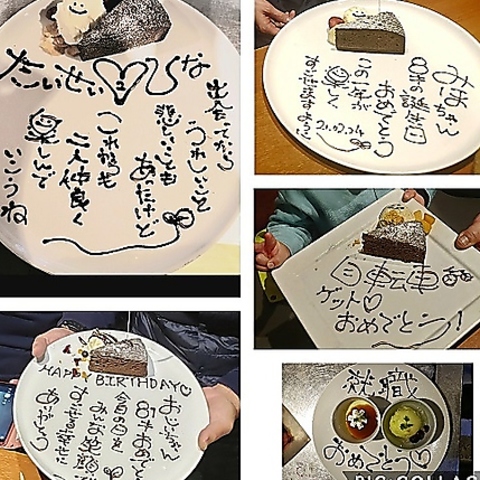 たいせい♡ひな
出会ってから
うれしいこと
悲しいことも
あったけど
これからも
二人仲良く
楽しんで
いこうね
みほちゃん
8才の誕生日
おめでとう
この一年が
楽しく
すごせますように
21.02.24
自転車
ゲット♡
おめでとー!
HAPPY BIRTHDAY♡
おじいちゃん
81才おめでとう
今日の日を
みんな笑顔で
すごせる幸せに
ありがとう
就職
おめでとう♡
PIC COLLAGE